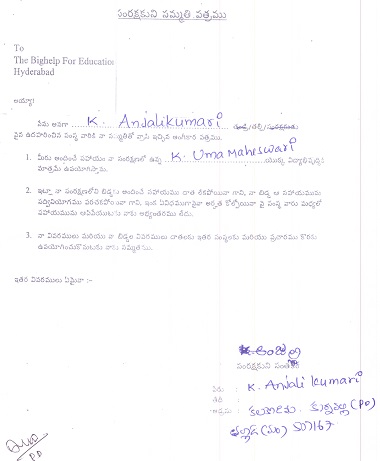 సంరక్షకుని సమ్మతి పత్రము
To
The Bighelp For Education
Hyderabad
అయ్యా!
నేను అనగా K. Anjalikumari తండ్రి/తల్లి/సంరక్షకుడు
పైన ఉదహరించిన సంస్థ వారికి నా సమ్మతితో వ్రాసి ఇచ్చిన అంగీకార పత్రము.
1. మీరు అందించే సహాయం నా సంరక్షణలో ఉన్న K. Uma Maheswari యొక్క విద్యాభివృద్ధికి
మాత్రమే ఉపయోగిస్తాను.
2. ఇట్లా నా సంరక్షణలోని బిడ్డకు అందించే సహాయము దాత లేకపోయినా గాని, నా బిడ్డ ఆ సహాయమును
సద్వినియోగము పరచకపోయినా గాని, ఇంక ఏవిధముగానైనా అర్హత కోల్పోయినా పై సంస్థ వారు మధ్యలో
సహాయమును ఆపివేయుటకు నాకు అభ్యంతరము లేదు.
3. నా వివరములు మరియు నా బిడ్డల వివరములు దాతలకు ఇతర సంస్థలకు మరియు ప్రచారము కొరకు
ఉపయోగించుకొనుటకు నాకు సమ్మతము.
ఇతర వివరములు ఏమైనా :-
అంజలి
సంరక్షకుని సంతకం
పేరు : K. Anjali kumari
తేదీ :
అడ్రసు : కలకొడిమ, కుర్నవల్లి (PO)
తల్లాడ (మం) 507167